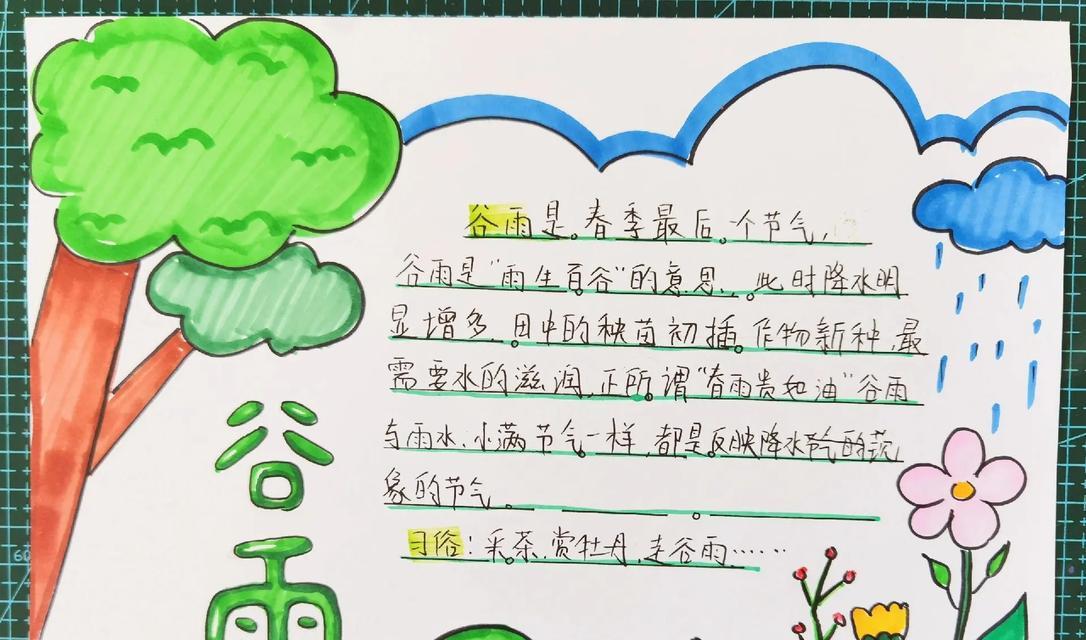 谷雨
谷雨是春季最后一个节气,
谷雨是“雨生百谷”的意思。此时降水明
显增多,田中的秧苗初插,作物新种,最
需要水的滋润,正所谓“春雨贵如油”谷雨
与雨水、小满节气一样,都是反映降水节气的现
象的节气。
习俗:采茶、赏牡丹、走谷雨……
60